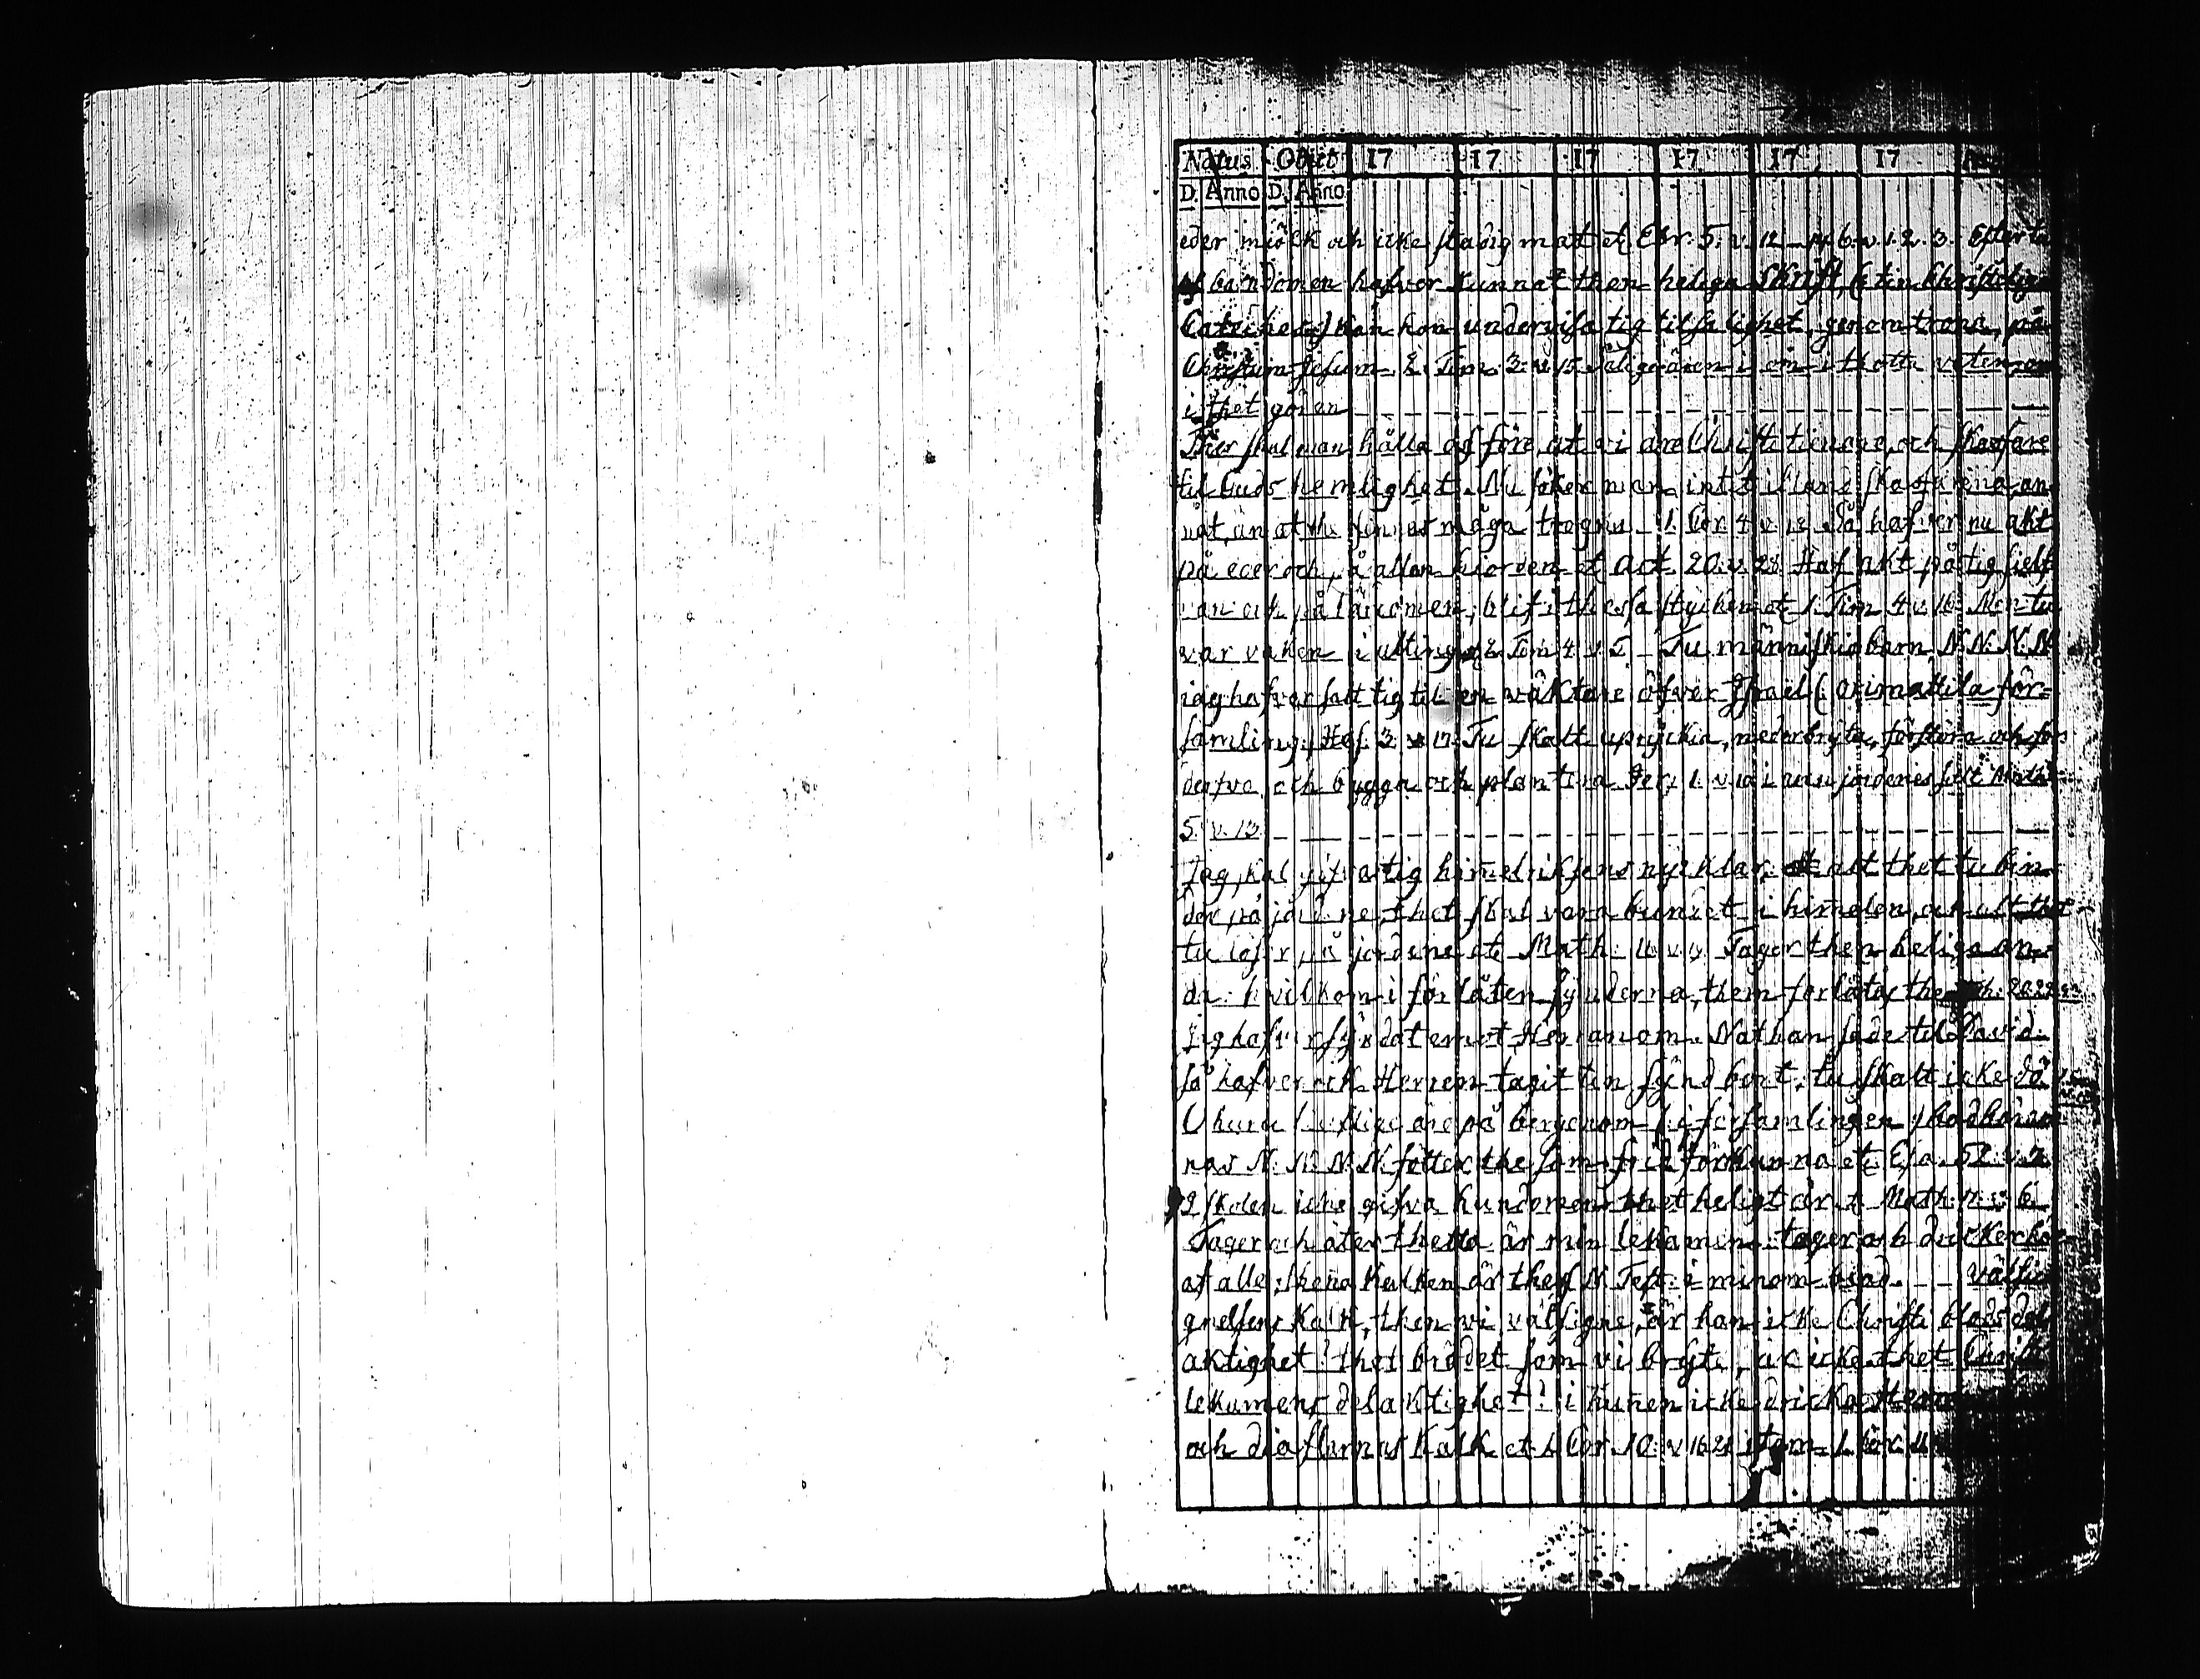 Natus Obiit 17 17 17 17 17 17
D. Anno D. Anno
eder miölk och icke stadig mat etc Ebr. 5. v. 12 - 14 6. v. 1. 2. 3. Efter tu
af barndomen hafver kunnat then heliga Skrift (tin Christeliga
Cateches) kan hon undervisa tig til salighet, genom trona, på
Christum Jesum. 2. Tim. 3. v. 15. Salige ären i om i thetta veten, om
i thet gören
Ther skal man hålla oss före, at vi are Christi tienare, och skaffare
til Guds hemlighet. Nu söker man intet ibland skaffarena, an
nat, än at the finnas måga trogne. 1. Cor. 4 v. 1. 2. Så hafver nu akt
på eder och på allan hiorden etc Act. 20. v. 28. Haf akt på tig sielf
van och på lärdomen; blif i thessa stycken etc 1. Tim 4 v. 16. Men tu
var vaken i all ting 2. Tim 4 v. 5 - Tu människiobarn N. N. N. N.
iag hafver satt tig til en väktare öfver Israel (Arimattila för=
samling) Hes. 3. v. 17. Tu skalt upryckia, nederbryta, förstöra och för
derfva och bygga och plantera Jer. 1. v. 10 i ären jordenes salt Math
5. v. 13.
Jag skal gifva tig himelrikisens nycklar; alt thet tu bin
der på jordene, thet skal vara bundet i himelen, och alt thet
tu löser på jordene etc Math. 16 v. 19 Tager then heliga an
da: hvilkom i förlåten synderna, them förlåtas the Joh. 20. 22
Jag hafver syndat emot Herranom. Nathan sade til David
så hafver ock Herren tagit tin synd bort, tu skalt icke dö
O huru liuflige äre på bergenom (i församlingen) bodbärar
nas N. N. N. N. fötter the som frid förkunna etc Esa. 52. v. 7.
I skolen icke gifva hundomen thet heligt är. Math. 7. v. 6.
Tager och äter thetta är min lekamen. tager och dricker här
af alle; thena kalken är thes N. Test. i minom blod. - - välsig
gnelsens kalk, then vi välsigne, är han icke Christi blods del
aktighet? thet brödet som vi bryte, är icke thet Christi
lekamens delaktighet? i kunnen icke dricka Herrans
och dieflarnas kalk etc 1. Cor. 10. v. 16. 21 item 1. Cor. 11